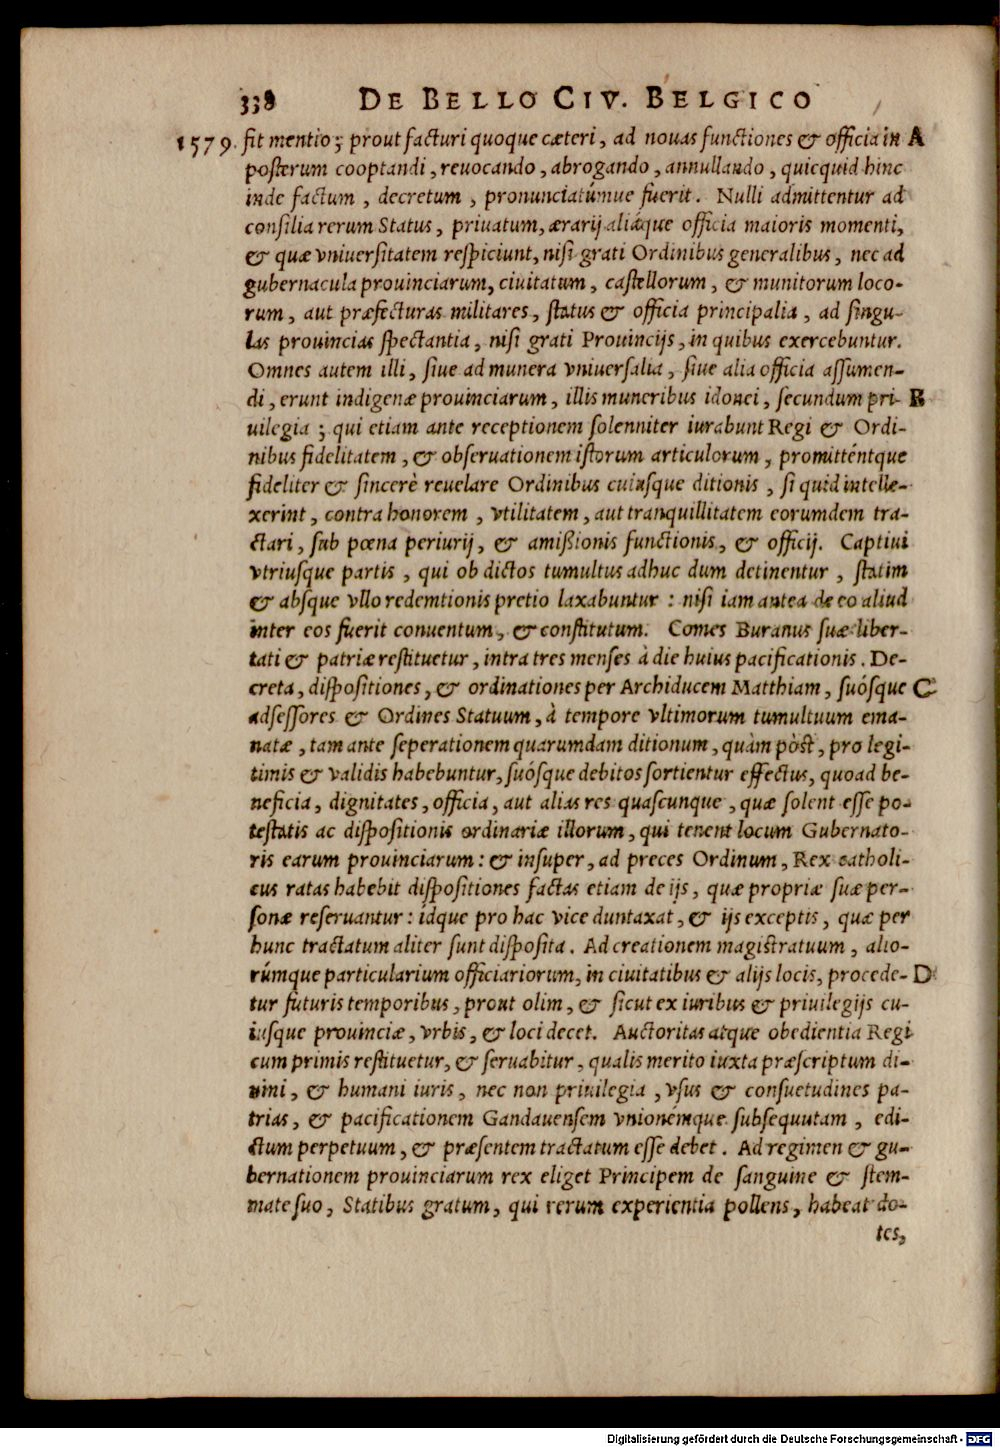 338 DE BELLO CIV. BELGICO
1579. fit mentio; prout facturi quoque cæteri, ad nouas functiones & officia in A
posterum cooptandi, reuocando, abrogando, annullando, quicquid hinc
inde factum, decretum, pronunciatúmue fuerit. Nulli admittentur ad
consilia rerum Status, priuatum, ærarij aliáque officia maioris momenti,
& quæ vniuersitatem respiciunt, nisi grati Ordinibus generalibus, nec ad
gubernacula prouinciarum, ciuitatum, castellorum, & munitorum loco-
rum, aut præfecturas militares, status & officia principalia, ad singu-
las prouincias spectantia, nisi grati Prouincijs, in quibus exercebuntur.
Omnes autem illi, siue ad munera vniuersalia, siue alia officia assumen-
di, erunt indigenæ prouinciarum, illis muneribus idonei, secundum pri- B
uilegia; qui etiam ante receptionem solenniter iurabunt Regi & Ordi-
nibus fidelitatem, & obseruationem istorum articulorum, promitténtque
fideliter & sincerè reuelare Ordinibus cuiusque ditionis, si quid intelle-
xerint, contra honorem, vtilitatem, aut tranquillitatem eorumdem tra-
ctari, sub pœna periurij, & amißionis functionis, & officij. Captiui
vtriusque partis, qui ob dictos tumultus adhuc dum detinentur, statim
& absque vllo redemtionis pretio laxabuntur: nisi iam antea de eo aliud
inter eos fuerit conuentum, & constitutum. Comes Buranus suæ liber-
tati & patriæ restituetur, intra tres menses à die huius pacificationis. De-
creta, dispositiones, & ordinationes per Archiducem Matthiam, suósque C
adsessores & Ordines Statuum, à tempore vltimorum tumultuum ema-
natæ, tam ante seperationem quarumdam ditionum, quàm pòst, pro legi-
timis & validis habebuntur, suósque debitos sortientur effectus, quoad be-
neficia, dignitates, officia, aut alias res quascunque, quæ solent esse po-
testatis ac dispositionis ordinariæ illorum, qui tenent locum Gubernato-
ris earum prouinciarum: & insuper, ad preces Ordinum, Rex catholi-
cus ratas habebit dispositiones factas etiam de ijs, quæ propriæ suæ per-
sonæ reseruantur: ídque pro hac vice duntaxat, & ijs exceptis, quæ per
hunc tractatum aliter sunt disposita. Ad creationem magistratuum, alio-
rúmque particularium officiariorum, in ciuitatibus & alijs locis, procede- D
tur futuris temporibus, prout olim, & sicut ex iuribus & priuilegijs cu-
iusque prouinciæ, vrbis, & loci decet. Auctoritas atque obedientia Regi
cum primis restituetur, & seruabitur, qualis merito iuxta præscriptum di-
uini, & humani iuris, nec non priuilegia, vsus & consuetudines pa-
trias, & pacificationem Gandauensem vnionémque subsequutam, edi-
ctum perpetuum, & præsentem tractatum esse debet. Ad regimen & gu-
bernationem prouinciarum rex eliget Principem de sanguine & stem-
mate suo, Statibus gratum, qui rerum experientia pollens, habeat do-
tes,
Digitalisierung gefördert durch die Deutsche Forschungsgemeinschaft - DFG